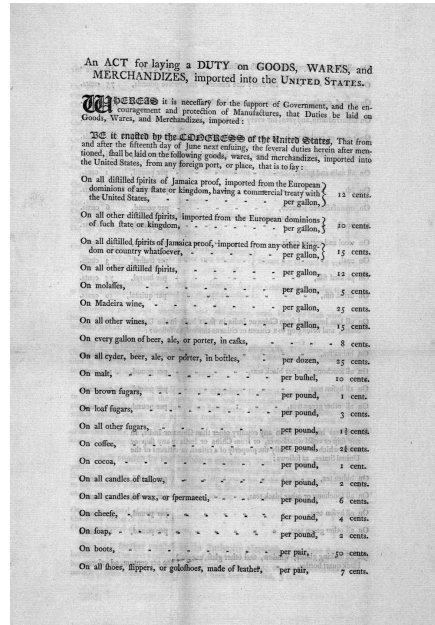 An ACT for laying a DUTY on GOODS, WARES, and
MERCHANDIZES, imported into the UNITED STATES.
WHEREAS it is necessary for the support of Government, and the en-
couragement and protection of Manufactures, that Duties be laid on
Goods, Wares, and Merchandizes, imported:
BE it enacted by the CONGRESS of the United States, That from
and after the fifteenth day of June next ensuing, the several duties herein after men-
tioned, shall be laid on the following goods, wares, and merchandizes, imported into
the United States, from any foreign port, or place, that is to say:
On all distilled spirits of Jamaica proof, imported from the European
dominions of any state or kingdom, having a commercial treaty with
the United States, per gallon, 12 cents.
On all other distilled spirits, imported from the European dominions
of such state or kingdom, - - - - per gallon, 10 cents.
On all distilled spirits of Jamaica proof, imported from any other king-
dom or country whatsoever, - - per gallon, 15 cents.
On all other distilled spirits, - - - per gallon, 12 cents.
On molasses, - - - - - per gallon, 5 cents.
On Madeira wine, - - - - - per gallon, 25 cents.
On all other wines, - - - - - per gallon, 15 cents.
On every gallon of beer, ale, or porter, in casks, - - - 8 cents.
On all cyder, beer, ale, or porter, in bottles, - - per dozen, 25 cents.
On malt, - - - - - per bushel, 10 cents.
On brown sugars, - - - - - per pound, 1 cent.
On loaf sugars, - - - - - per pound, 3 cents.
On all other sugars, - - - - - per pound, 1½ cents.
On coffee, - - - - - per pound, 2½ cents.
On cocoa, - - - - - per pound, 1 cent.
On all candles of tallow, - - - - per pound, 2 cents.
On all candles of wax, or spermaceti, - - - per pound, 6 cents.
On cheese, - - - - - per pound, 4 cents.
On soap, - - - - - per pound, 2 cents.
On boots, - - - - - per pair, 50 cents.
On all shoes, slippers, or goloshoes, made of leather, per pair, 7 cents.